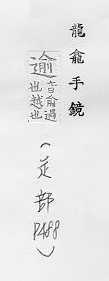 龍龕手鏡
逾
音俞過
也越也
(辵部 P488)